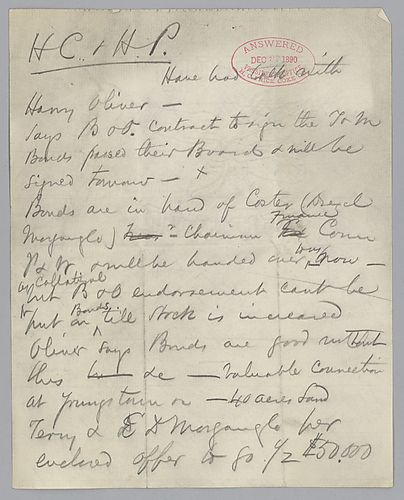 H C. & H. P.
ANSWERED
DEC 1890
H. CLAY FRICK COKE CO.
Have had talk with
Harry Oliver —
says B & O. contract to sign the T & M
Bonds passed their Board & will be
signed Tomorrow — x
Bonds are in hand of Coster (Drexel
Morgan & Co) Chairman Finance Com
P & W & will be handed over now —
as Collateral
but B & O endorsement cant be
put on Bonds till stock is increased
Oliver says Bonds are good without
this &c — Valuable connection
at Youngstown — 40 acres land
Terry & E D Morgan & Co per
enclosed offer to go 1/2 $50.000